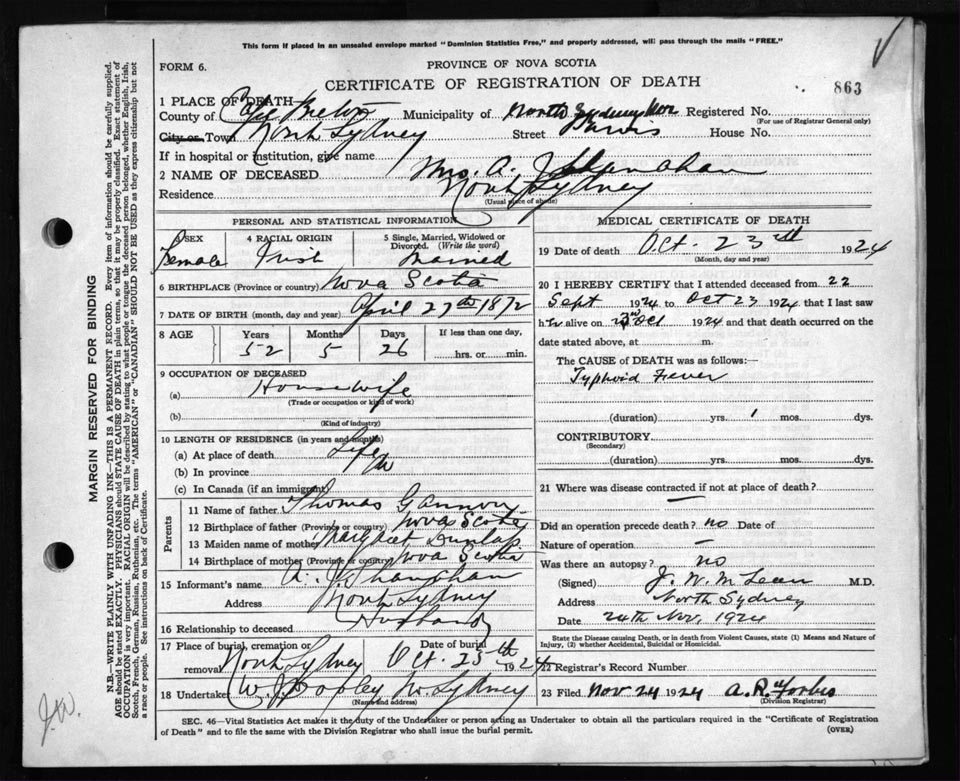 This form if placed in an unsealed envelope marked "Dominion Statistics Free," and properly addressed, will pass through the mails "FREE."
FORM 6.
PROVINCE OF NOVA SCOTIA
CERTIFICATE OF REGISTRATION OF DEATH
863
1 PLACE OF DEATH
County of Cape Breton Municipality of North Sydney Registered No.
(For use of Registrar General only)
City or Town North Sydney Street House No.
If in hospital or institution, give name
2 NAME OF DECEASED Mrs. A. J. Shanahan
Residence North Sydney
(Usual place of abode)
PERSONAL AND STATISTICAL INFORMATION
3 SEX Female
4 RACIAL ORIGIN Irish
5 Single, Married, Widowed or Divorced. (Write the word) Married
6 BIRTHPLACE (Province or country) Nova Scotia
7 DATE OF BIRTH (month, day and year) April 27th 1872
8 AGE Years Months Days If less than one day,
52 5 26 hrs. or min.
9 OCCUPATION OF DECEASED
(a) Housewife
(Trade or occupation or kind of work)
(b)
(Kind of industry)
10 LENGTH OF RESIDENCE (in years and months)
(a) At place of death Life
(b) In province
(c) In Canada (if an immigrant)
Parents
11 Name of father Thomas Gannon
12 Birthplace of father (Province or country) Nova Scotia
13 Maiden name of mother Margaret Dunlap
14 Birthplace of mother (Province or country) Nova Scotia
15 Informant's name A. J. Shanahan
Address North Sydney
16 Relationship to deceased Husband
17 Place of burial, cremation or removal North Sydney Date of burial Oct. 25th 1924
18 Undertaker W. J. Dooley N. Sydney
(Name and address)
MEDICAL CERTIFICATE OF DEATH
19 Date of death Oct. 23rd 1924
(Month, day and year)
20 I HEREBY CERTIFY that I attended deceased from 22
Sept 1924 to Oct 23 1924 that I last saw
her alive on Oct 1924 and that death occurred on the
date stated above, at m.
The CAUSE of DEATH was as follows:—
Typhoid Fever
(duration) yrs. 1 mos. dys.
CONTRIBUTORY
(Secondary)
(duration) yrs. mos. dys.
21 Where was disease contracted if not at place of death?
—
Did an operation precede death? no Date of
Nature of operation —
Was there an autopsy? no
(Signed) J. W. McLean M.D.
Address North Sydney
Date 24th Nov, 1924
State the Disease causing Death, or in death from Violent Causes, state (1) Means and Nature of Injury, (2) whether Accidental, Suicidal or Homicidal.
22 Registrar's Record Number
23 Filed Nov 24 1924 A. R. Forbes
(Division Registrar)
SEC. 46—Vital Statistics Act makes it the duty of the Undertaker or person acting as Undertaker to obtain all the particulars required in the "Certificate of Registration
of Death" and to file the same with the Division Registrar who shall issue the burial permit.
(OVER)
MARGIN RESERVED FOR BINDING
N.B.—WRITE PLAINLY WITH UNFADING INK—THIS IS A PERMANENT RECORD. Every item of information should be carefully supplied.
AGE should be stated EXACTLY. PHYSICIANS should STATE CAUSE OF DEATH in plain terms, so that it may be properly classified. Exact statement of
OCCUPATION is very important. RACIAL ORIGIN will be described by stating to what people or tongue the deceased person belonged, whether English, Irish,
Scotch, French, German, Russian, Ruthenian, etc. The terms "AMERICAN" or "CANADIAN" SHOULD NOT BE USED as they express citizenship but not
a race or people. See instructions on back of Certificate.
J.W.